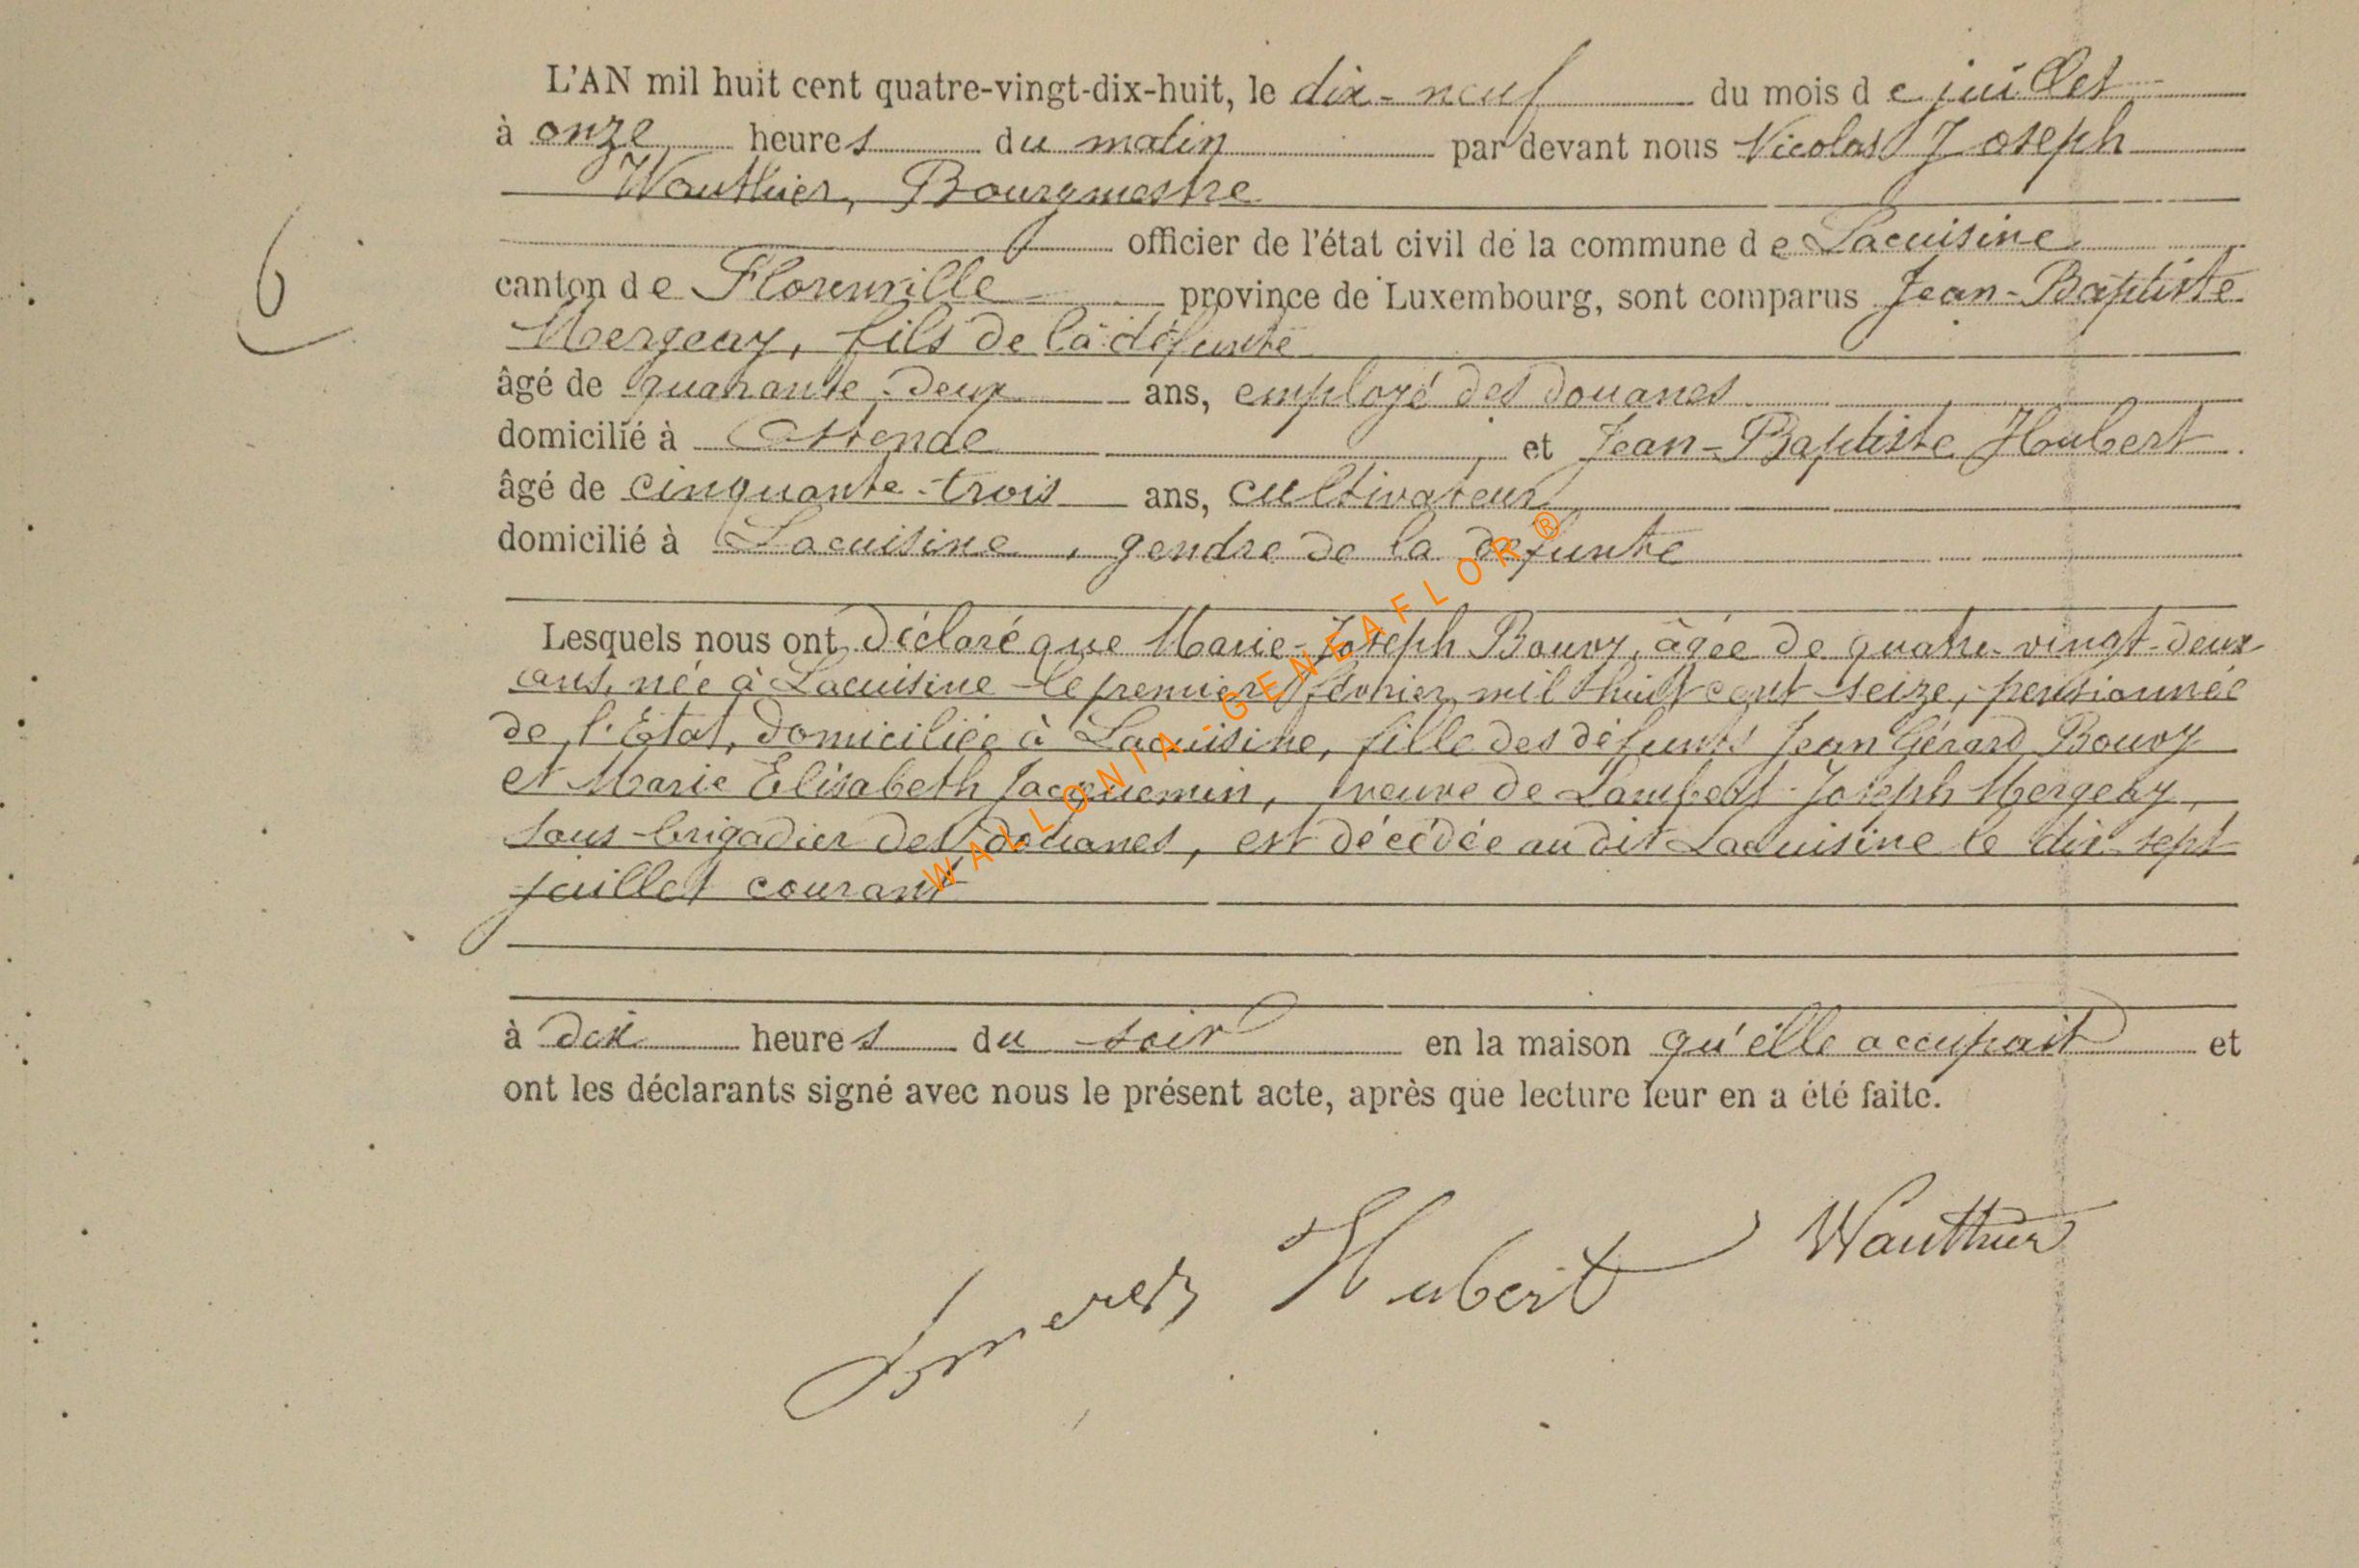 L'AN mil huit cent quatre-vingt-dix-huit, le dix-neuf du mois de juillet
à onze heures du matin par devant nous Nicolas Joseph
Wauthier, Bourgmestre
officier de l'état civil de la commune de Lacuisine
6
canton de Florenville province de Luxembourg, sont comparus Jean-Baptiste
Mergeay, fils de la défunte
âgé de quarante-deux ans, employé des douanes
domicilié à Ostende et Jean-Baptiste Hubert
âgé de cinquante-trois ans, cultivateur
domicilié à Lacuisine, gendre de la défunte
Lesquels nous ont déclaré que Marie-Joseph Bouvy, âgée de quatre-vingt-deux
ans, née à Lacuisine le premier février mil huit cent seize, pensionnée
de l'Etat, domiciliée à Lacuisine, fille des défunts Jean Gérard Bouvy
et Marie Elisabeth Jacquemin, veuve de Lambert-Joseph Mergeay,
sous-brigadier des douanes, est décédée au dit Lacuisine le dix-sept
juillet courant
à dix heures du soir en la maison qu'elle occupait et
ont les déclarants signé avec nous le présent acte, après que lecture leur en a été faite.
Hubert Wauthier
WALLONIA-GENEAFLOR®